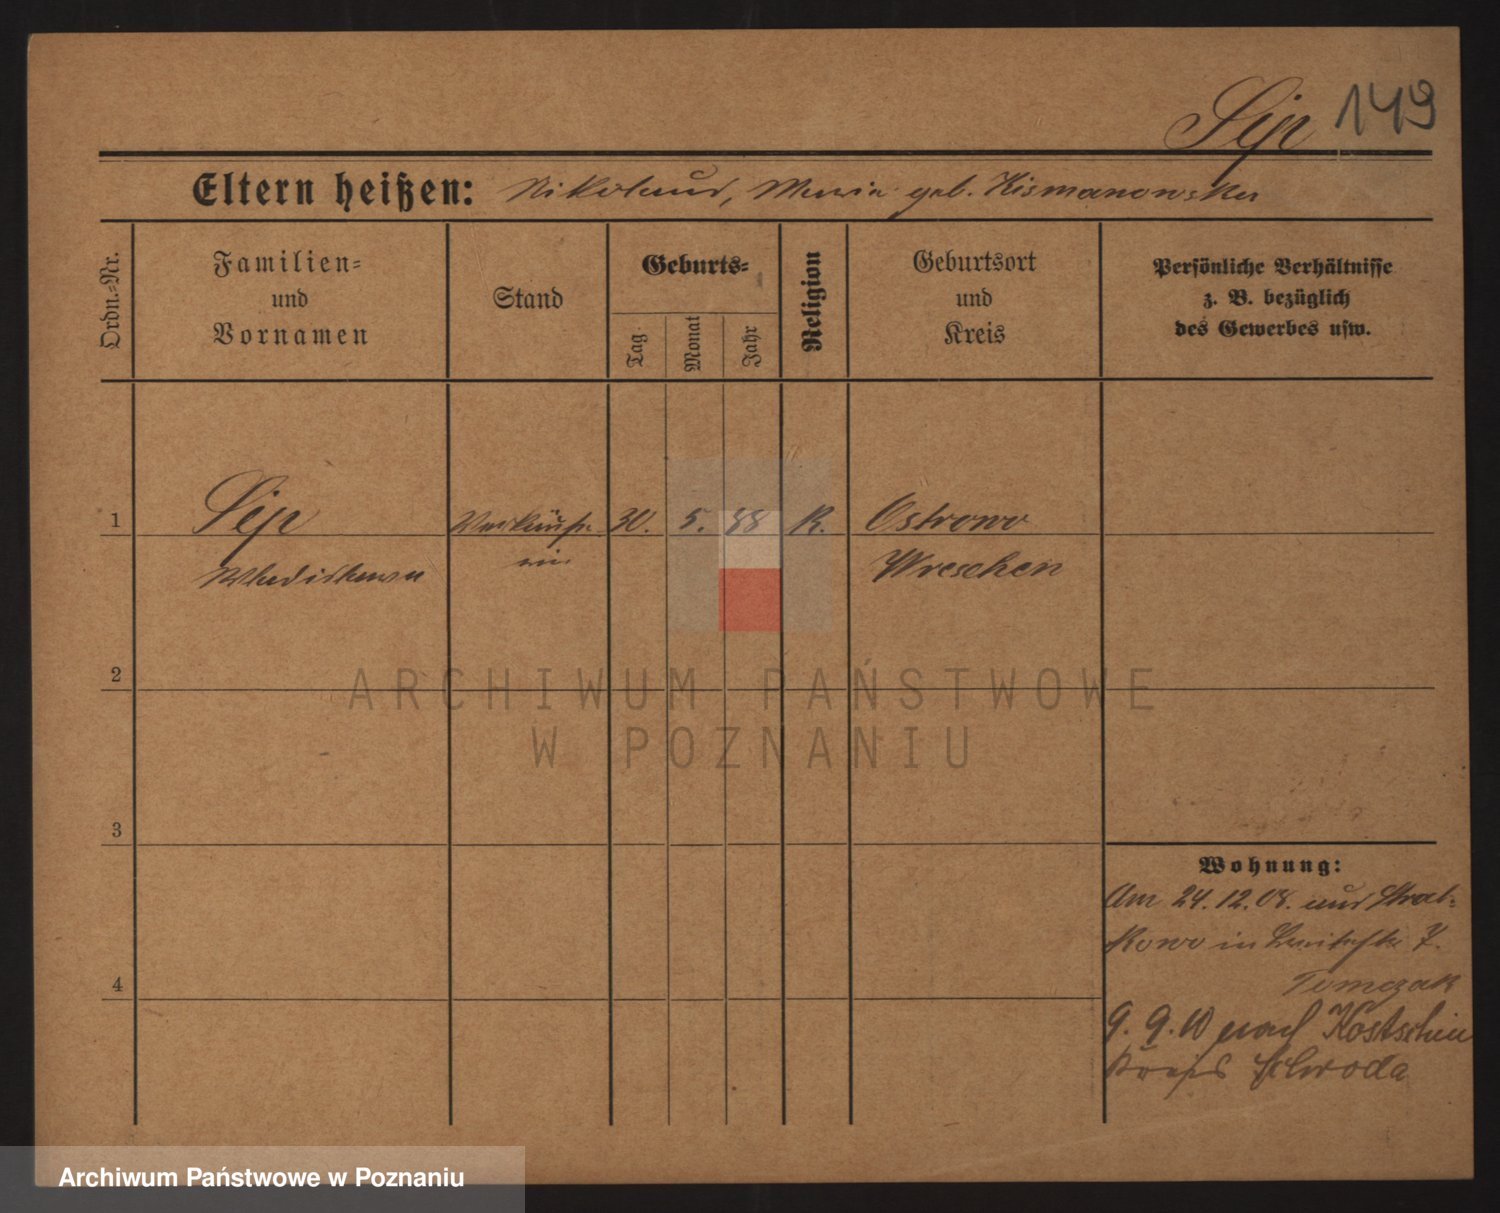 Sip 149
Eltern heißen: Nikolaus, Maria geb. Kismanowska
Ordn.-Nr.
Familien-
und
Vornamen
Stand
Geburts-
Tag
Monat
Jahr
Religion
Geburtsort
und
Kreis
Persönliche Verhältnisse
z. B. bezüglich
des Gewerbes usw.
1 Sip Verkäufe- 30. 5. 88 R. Ostrowo
Wladislawa rin Wreschen
2
3
4
Wohnung:
Am 24.12.08. aus Stral-
kowo in 7.
Tomczak
9. 9. 10 nach Kostschin
Kreis Schroda
ARCHIWUM PAŃSTWOWE
W POZNANIU
Archiwum Państwowe w Poznaniu